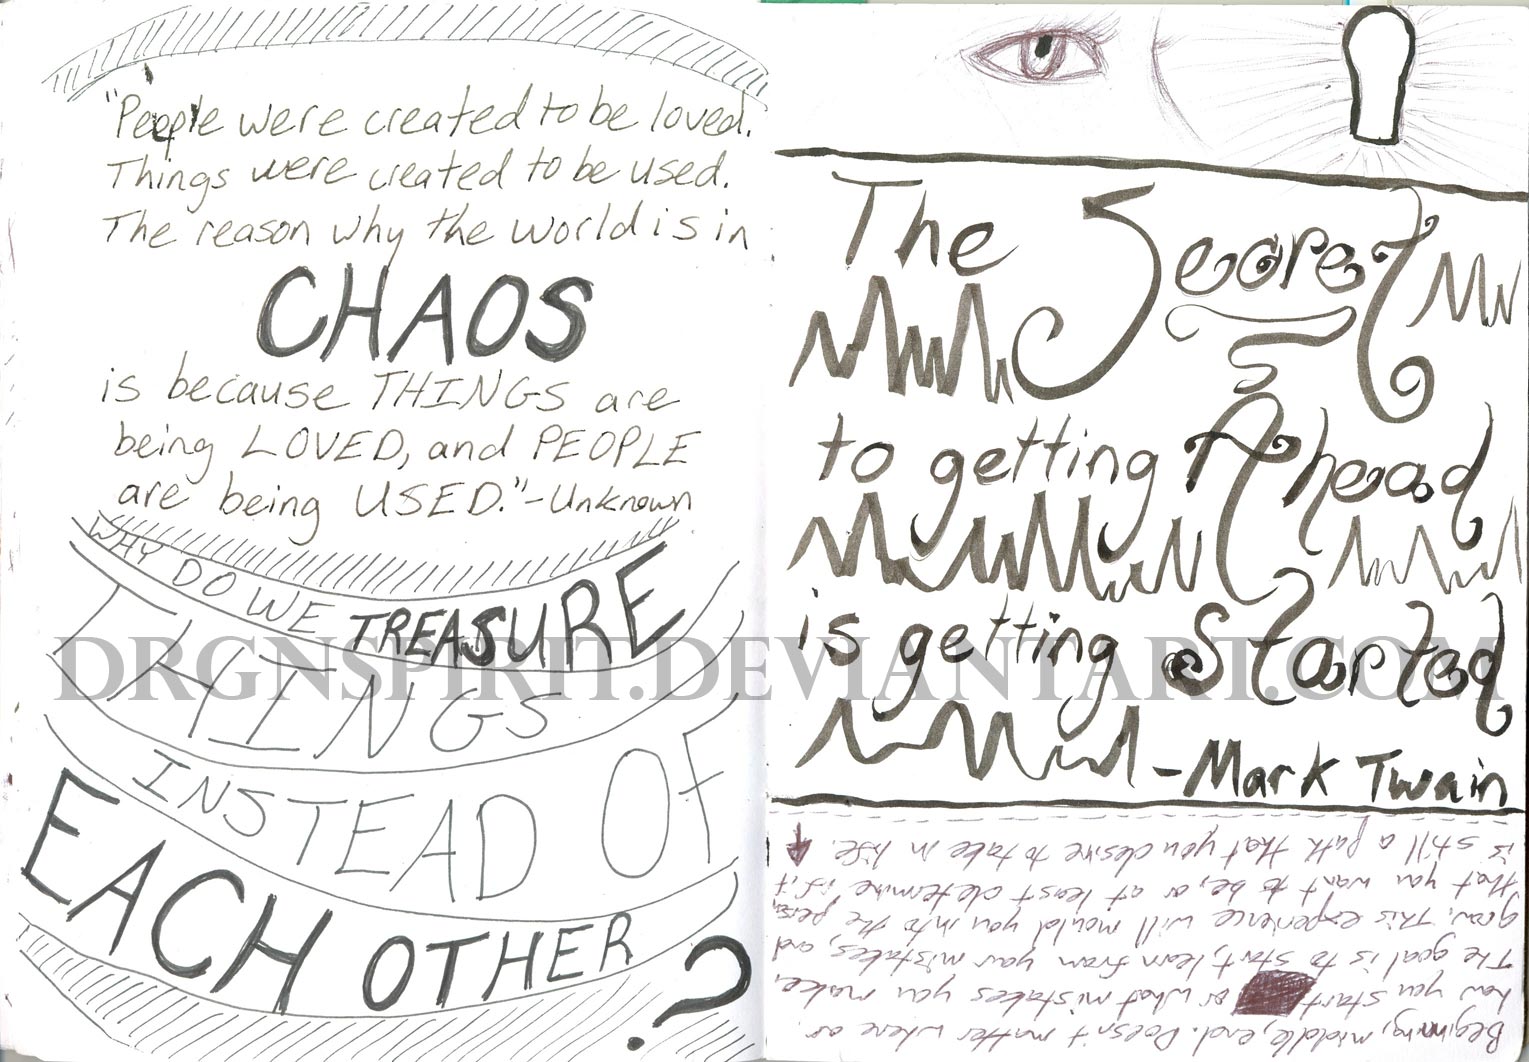 "People were created to be loved.
Things were created to be used.
The reason why the world is in
CHAOS
is because THINGS are
being LOVED, and PEOPLE
are being USED."-Unknown
WHY DO WE TREASURE
THINGS
INSTEAD OF
EACH OTHER?
The Secret
to getting Ahead
is getting Started
-Mark Twain
Beginning, middle, end. Doesn't matter where or
how you start or what mistakes you make,
The goal is to start, learn from your mistakes, and
grow. This experience will mould you into the person
that you want to be, or at least determine if it
is still a path that you desire to take in life.
DRGNSPIRIT.DEVIANTART.COM